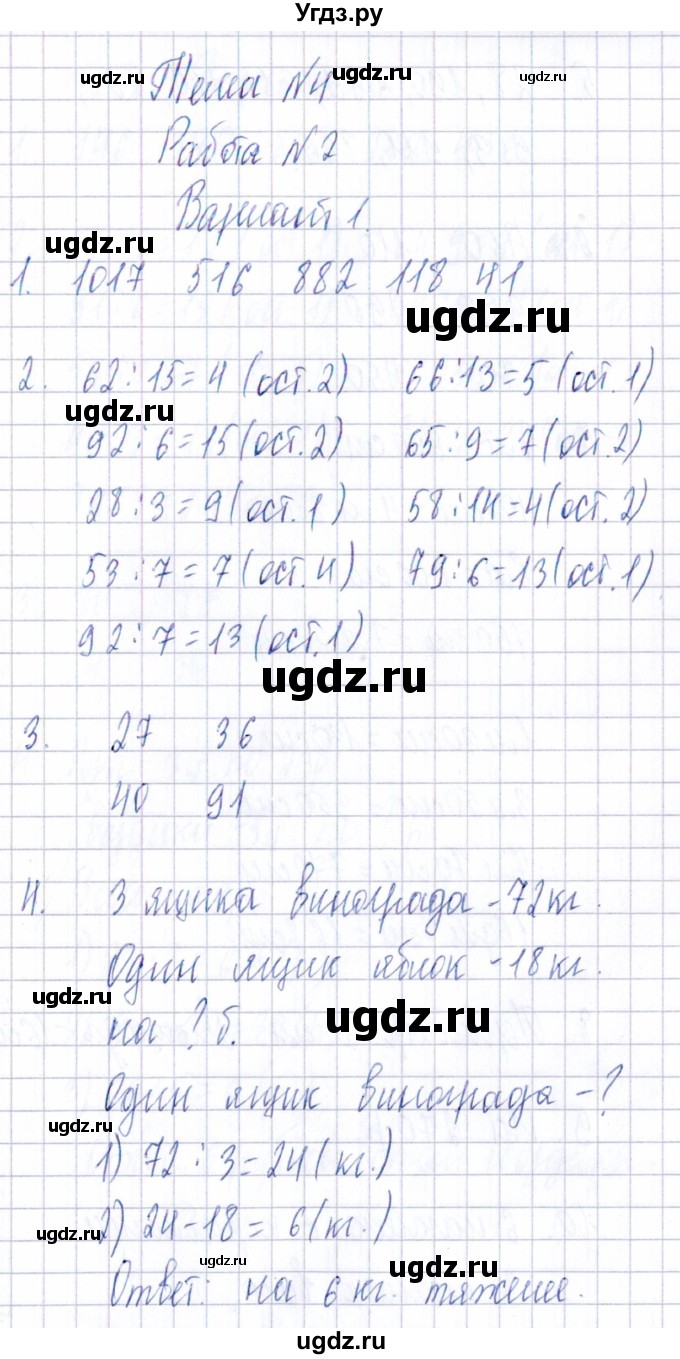 Угдз.ру
ugdz.ru ugdz.ru ugdz.ru
Тема №4
Работа №2
Вариант 1.
ugdz.ru
1. 1017 516 882 118 41
ugdz.ru
2. 62:15=4 (ост. 2) 66:13=5 (ост. 1)
ugdz.ru
92:6=15 (ост. 2) 65:9=7 (ост. 2)
28:3=9 (ост. 1) 58:14=4 (ост. 2)
53:7=7 (ост. 4) 79:6=13 (ост. 1)
92:7=13 (ост. 1)
ugdz.ru
3. 27 36
40 91
4. 3 ящика винограда - 72 кг.
Один ящик яблок - 18 кг.
ugdz.ru
на ? б.
ugdz.ru
Один ящик винограда - ?
ugdz.ru
1) 72:3=24 (кг.)
2) 24-18= 6 (кг.)
ugdz.ru
ugdz.ru ugdz.ru
Ответ: на 6 кг. тяжелее.
ugdz.ru